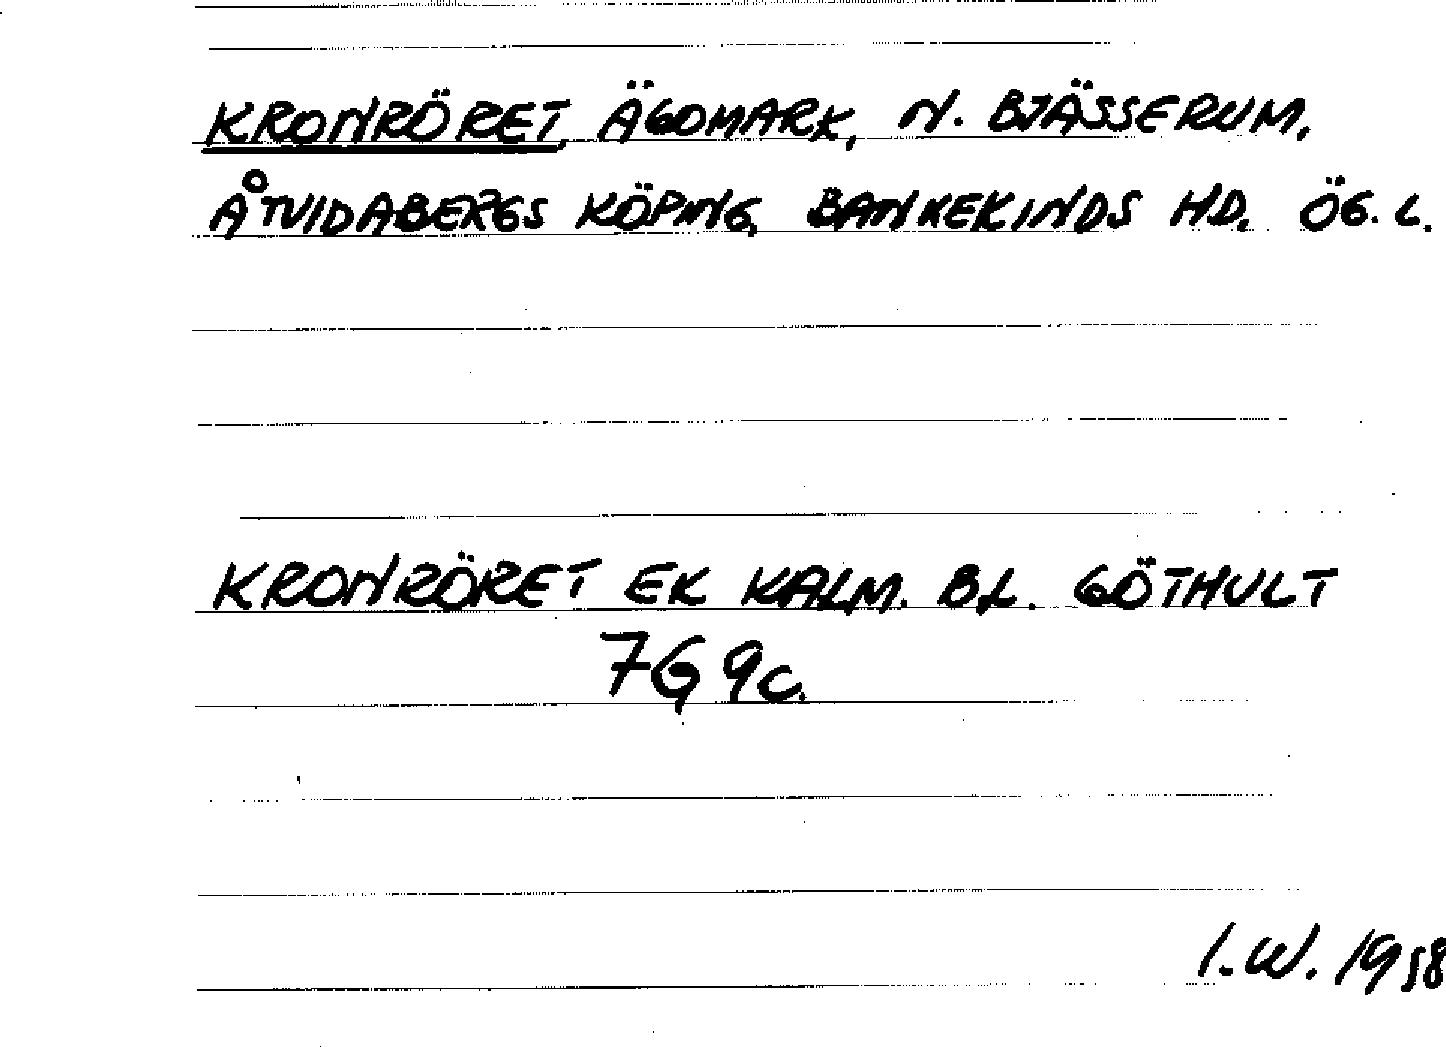 KRONRÖRET, ÄGOMARK, N. BJÄSSERUM,
ÅTVIDABERGS KÖPING, BANKEKINDS HD. ÖG. L.
KRONRÖRET EK KALM. BL. GÖTHULT
7G 9c.
I.W. 1958